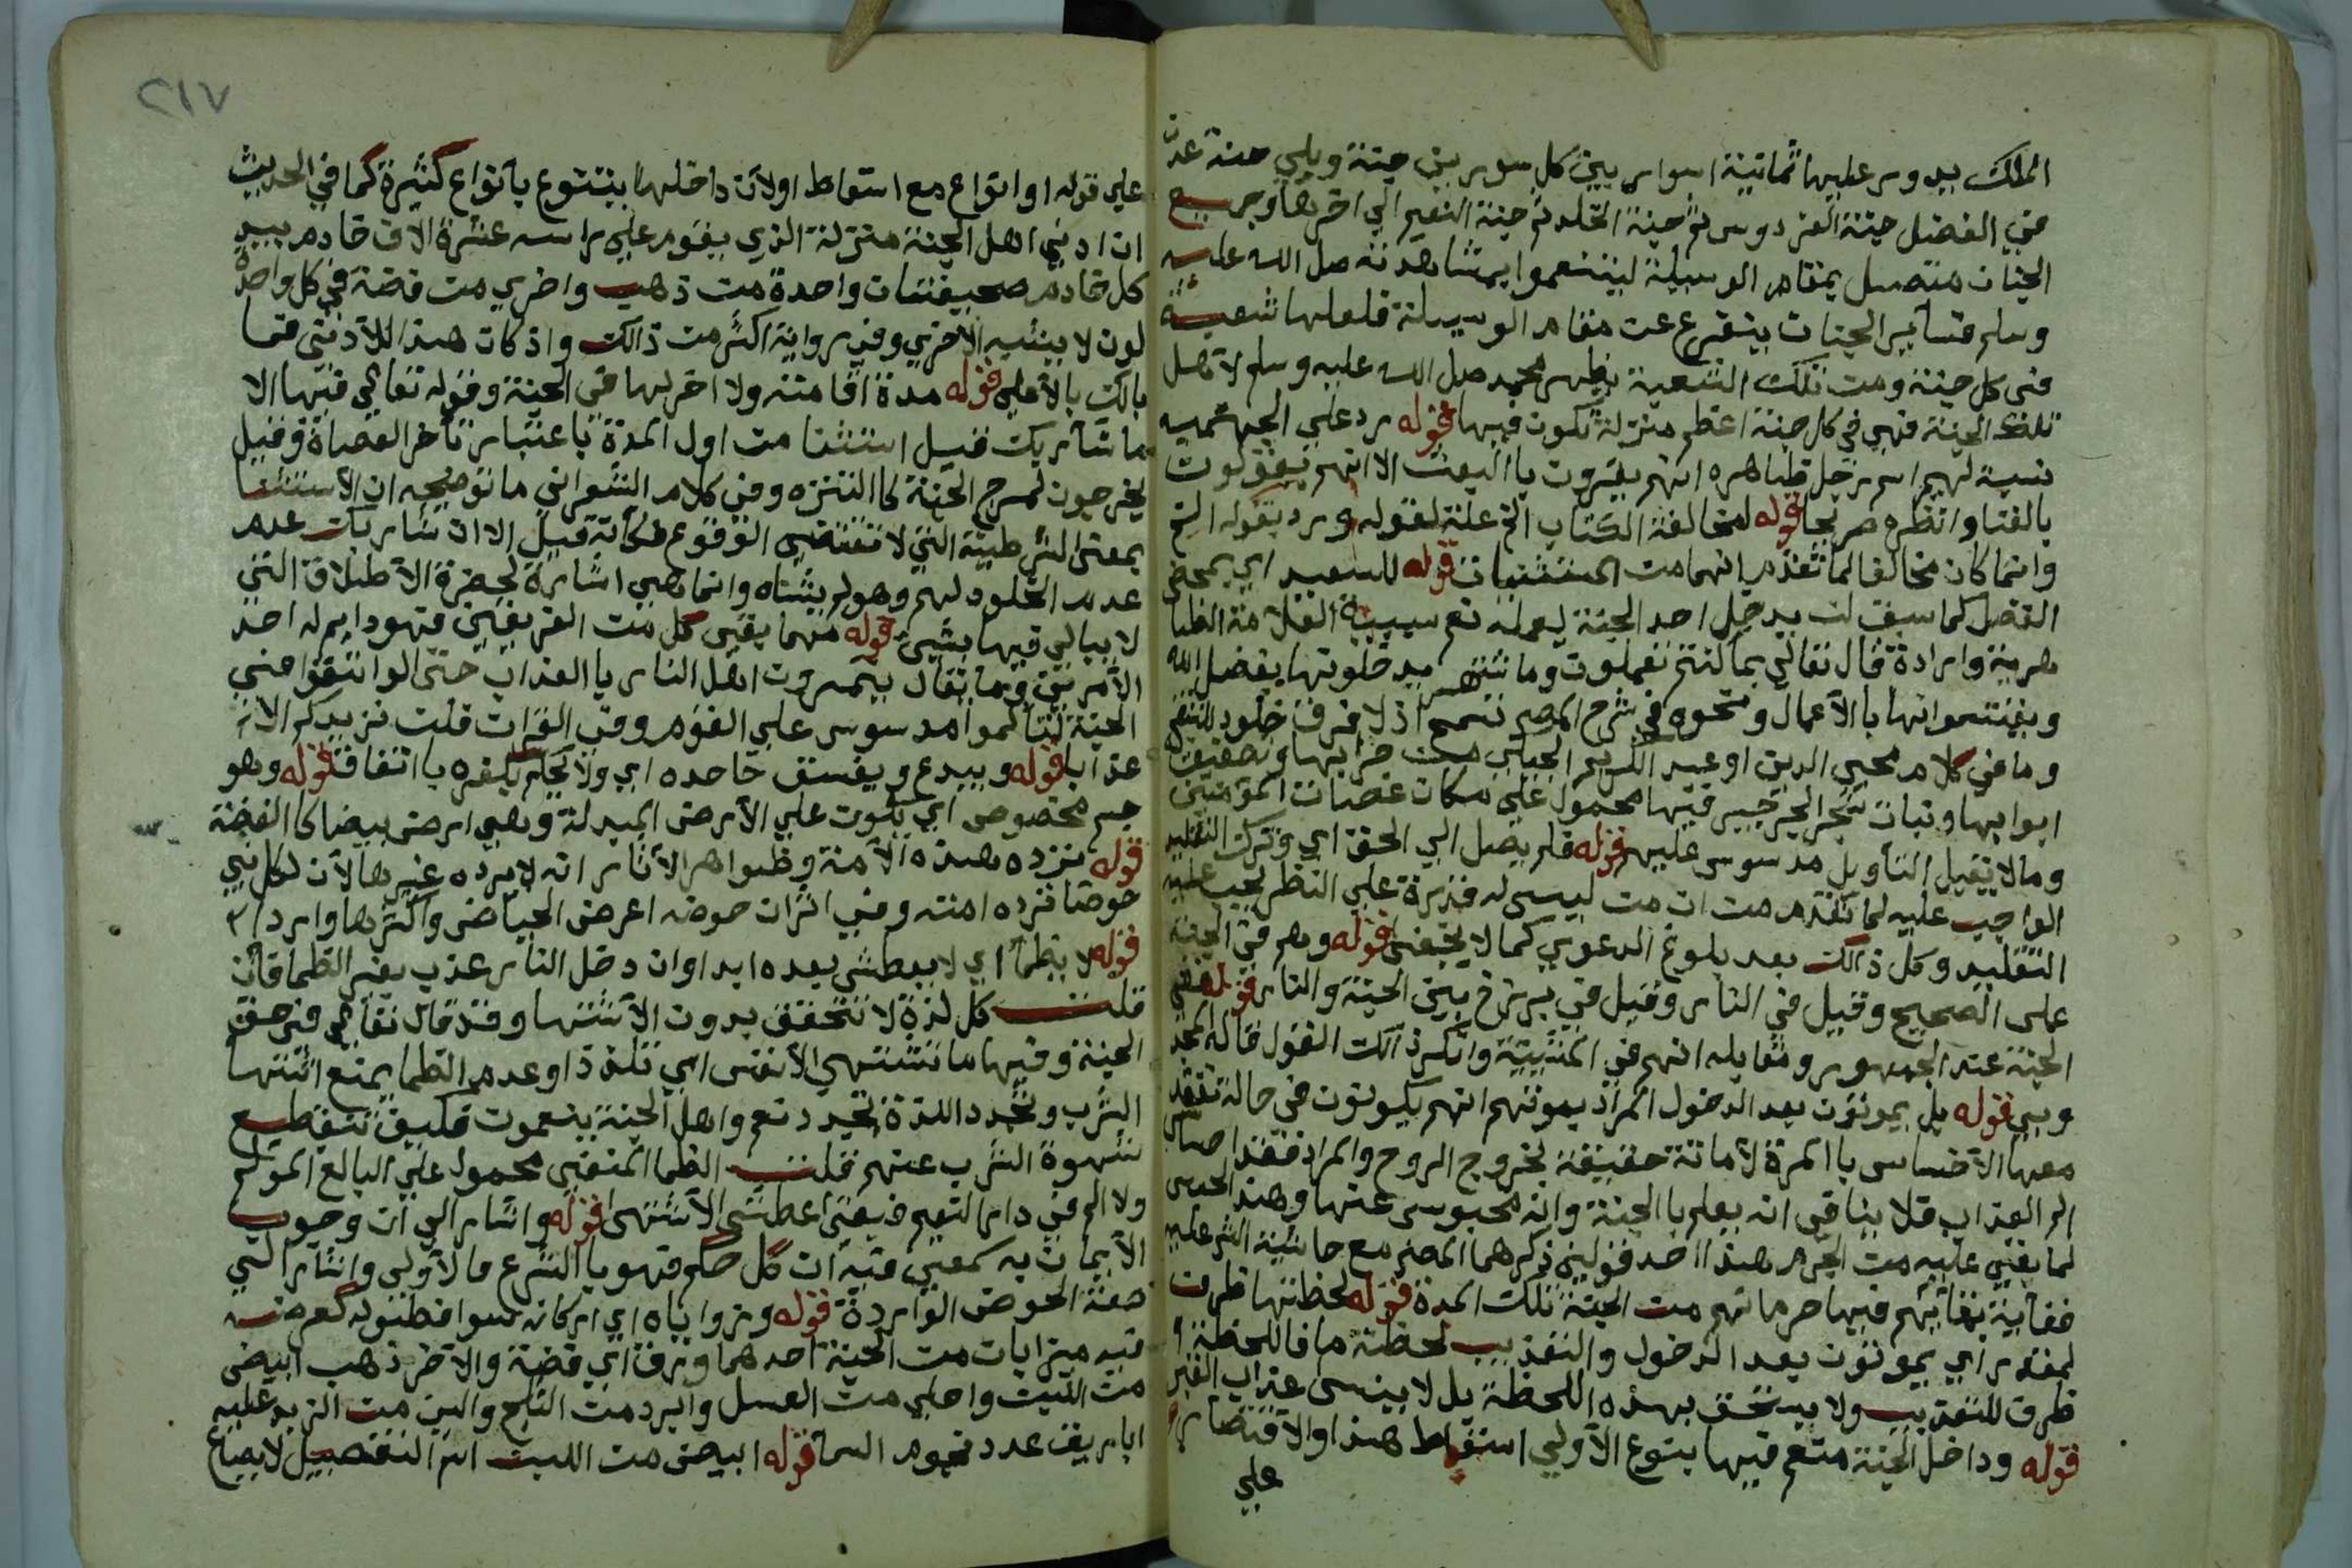 الملك يدور عليها ثمانية اسوار بين كل سورين جنة ويلي جنة عدن
في الفضل جنة الفردوس ثم جنة الخلد ثم جنة النعيم الي اخرها وجميع
الجنان متصل بمقام الوسيلة ليتنعموا بمشاهدته صلى الله عليه
وسلم فسائر الجنات يتفرع عن مقام الوسيلة فلعلها شعبة
في كل جنة ومن تلك الشعبة يظهر محمد صلى الله عليه وسلم لاهل
تلك الجنة فهي في كل جنة اعظم منزلة تكون فيها قوله رد علي الجهمية
نسبة لجهم اسم رجل ظاهره انهم يقرون باالبعث الا انهم يقولون
بالفنا وانظره صريحا قوله لمخالفة الكتاب الخ علة لقوله ورد بقوله الخ
وانما كان مخالفا لما تقدم انهما من المستثنيات قوله للسعيد اي بمحض
الفضل كما سبق لن يدخل احد الجنة بعمله نعم سببية العلامة الفلنا
هرية وارادة قال تعالي بما كنتم تعملون وما نشتهر من دخلوتها بفضل الله
ويقتسموانها باالاعمال ونحوه في شرح المصر تسمح اذ لا فرق خلود للشقي
وما في كلام محيي الدين او عبد الكريم الجيلي من خرابها وتصفيق
ابوابها ونبات شجر الجرجير فيها محمول علي مكان عصات المؤمنين
وما لا يقبل التاويل مدسوس عليهم قوله فلم يصل الي الحق اي وترك التقليد
الواجب عليه لما تقدم من ان من ليس له قدرة علي النظر يجب عليه
التقليد وكل ذالك بعد بلوغ الدعوي كما لا يخفى قوله وهم في الجنة
على الصحيح وقيل في النار وقيل في برزخ بين الجنة والنار قوله في
الجنة عند الجمهور ومقابله انهم في المشيئة وانكر ذالك القول قاله المجد
وبي قوله بل يموتون بعد الدخول المراد بموتهم انهم يكونون في حالة تفقد
معها الاحساس باالمرة لا ماتة حقيقة بخروج الروح والمراد فقد احساس
الم العذاب فلا ينافي انه يعلم باالجنة وانه محبوس عنها وهذا الحبس
لما بقي عليه من الجرم هذا احد قولين ذكرهما المصر مع حاشية الشر عليه
فغاية بقائهم فيها حرمانهم من الجنة تلك المدة قوله لحظتها ظرف
لمقدر اي يموتون بعد الدخول والتعذيب لحظة ما فااللحظة
ظرف للتعذيب ولا يستحق بهذه اللحظة بل لا ينسى عذاب القبر
قوله وداخل الجنة متنعم فيها بنوع الاولي اسقاط هذا والاقتصار
علي
٢١٧
علي قوله او انواع مع اسقاط اولان داخلها يتنوع بانواع كثيرة كما في الحديث
ان ادني اهل الجنة منزلة الذي يقوم علي راسه عشرة الاف خادم بيد
كل خادم صحيفتان واحدة من ذهب واخري من فضة في كل واحدة
لون لا يشبه الاخري وفي رواية اكثر من ذالك واذ كان هذا للادني فما
بالك بالاعلي قوله مدة اقامته ولا اخر لها في الجنة وقوله تعالي فيها الا
ما شا ربك قيل استثنا من اول المدة باعتبار تاخر العصاة وقيل
يخرجون لمرج الجنة كاالتنزه وفي كلام الشعراني ما توضيحه ان الاستثنا
بمعنى الشرطية التي لا تقتضي الوقوع فكانه قيل الا ان شا ربك عدم
عدم الخلود لهم وهو لم يشاه وانما هي اشارة لحضرة الاطلاق التي
لا يبالي فيها بشيئ قوله مهما بقي كل من الفريقين فهو دايم له احد
الامرين وما يقال يتمرون اهل النار باالعذاب حتى لو انتقوا مني
الجنة لتالموا مدسوس علي القوم وفي القران فلن نزيدكم الا
عذابا قوله ويبدع ويفسق جاحده اي ولا يحكم بكفره باتفاق قوله وهو
جسم مخصوص اي يكون علي الارض المبدلة وهي ارض بيضا كا الفضة
قوله ترده هذه الامة وظواهر الاثار انه لا يرده غيرها لان لكل نبي
حوضا ترده امته وفي اثران حوضه اعرض الحياض واكثرها واردا
قوله لا يظما اي لا يعطش بعده ابدا وان دخل النار عذب بغير الظما فان
قلت كل لذة لا تتحقق بدون الاشتها وقد قال تعالي في حق
الجنة وفيها ما تشتهي الانفس اي تلذذا وعدم الظما يمنع اشتها
الشرب وتجدد اللذة تجدد تنعم واهل الجنة ينعمون فكيف تنقطع
شهوة الشرب عنهم قلت الظما المنفي محمول علي البالغ المولم
ولا الم في دار النعيم فيبقي عطش الاشتهى قوله واشار الي ان وجوب
الايمان به كمعني فيه ان كل حكم فهو باالشرع فالاولي واشار الي
صفة الحوض الواردة قوله وزواياه اي اركانه سوا فطوله كعرضه
فيه ميزابان من الجنة احدهما ورق اي فضة والاخر ذهب ابيض
من اللبن واحلي من العسل وابرد من الثلج والين من الزبد عليه
اباريق عدد نجوم السما قوله ابيض من اللبن اسم التفضيل لا يصاغ